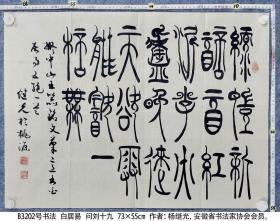 綠螘新
醅酒紅
泥小火
爐晚來
天欲雪
能飲一
桮無
中山王
居易五絕
继光於桃源
B3202号书法 白居易 问刘十九 73×55cm 作者: 杨继光, 安徽省书法家协会会员,